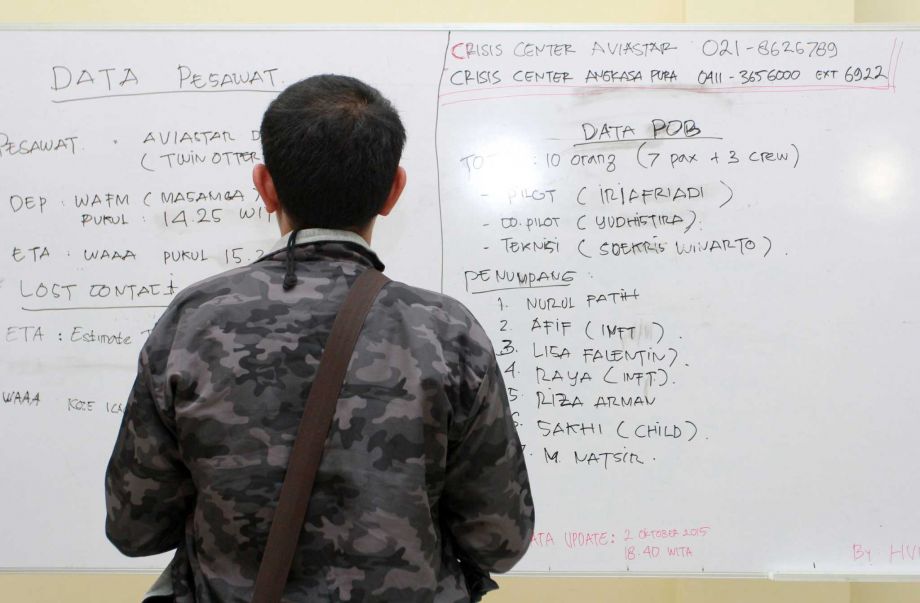 DATA PESAWAT.
PESAWAT . AVIASTAR D
(TWIN OTTER
DEP : WAFM ( MASAMBA )
PUKUL : 14.25 WIT
ETA : WAAA PUKUL 15.2
LOST CONTACT
ETA : Estimate T
WAAA KODE ICA
CRISIS CENTER AVIASTAR 021-8626789
CRISIS CENTER ANGKASA PURA 0411-3656000 EXT 6922
DATA POB
TOT : 10 orang (7 pax + 3 crew)
- PILOT ( IRIAFRIADI )
- CO.PILOT ( YUDHISTIRA).
- TEKNISI ( SOEKRIS WINARTO).
PENUMPANG :
1. NURUL FATIH
2. AFIF ( INFT ).
3. LISA FALENTIN).
4. RAYA ( INFT).
5. RIZA ARMAN
6. SAKHI ( CHILD).
7. M. NATSIR.
DATA UPDATE : 2 OKTOBER 2015
18.40 WITA
By